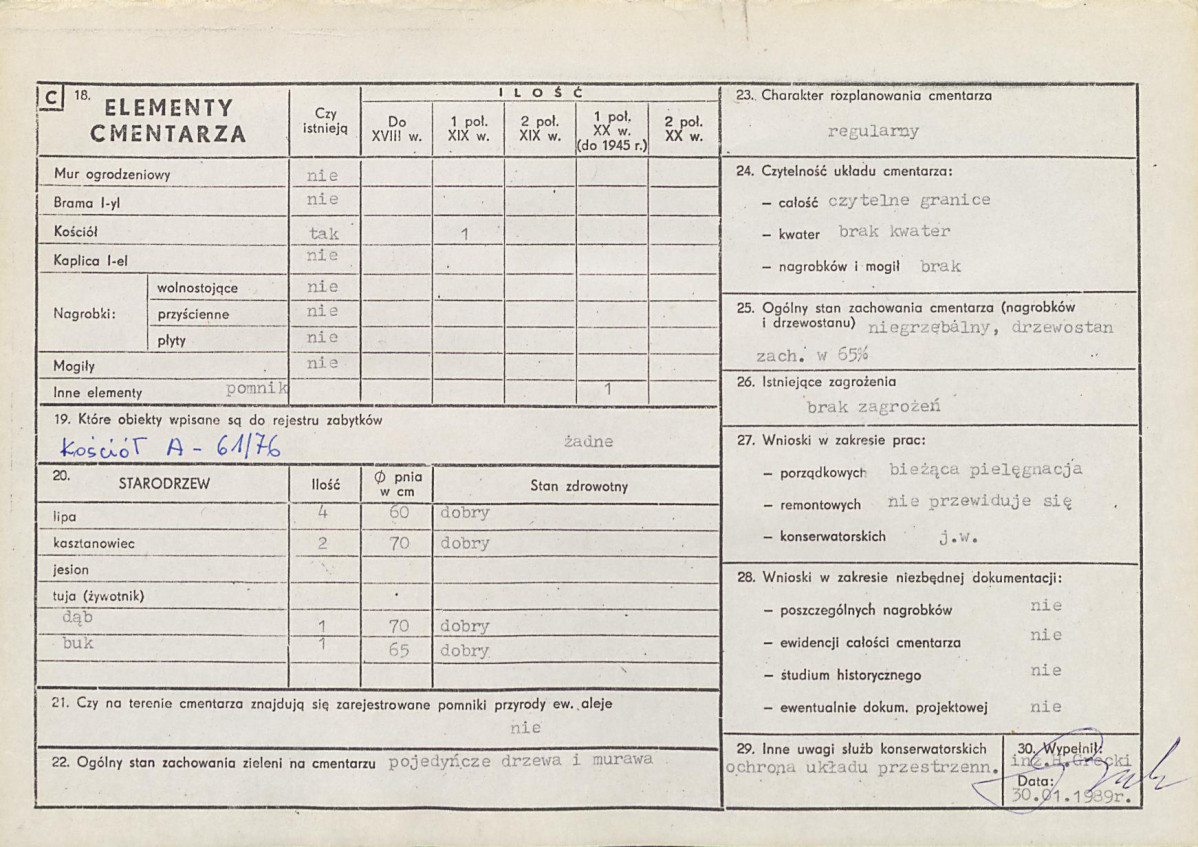 C 18. ELEMENTY CMENTARZA
Czy istnieją
I L O Ś Ć
Do XVIII w.
1 poł. XIX w.
2 poł. XIX w.
1 poł. XX w. (do 1945 r.)
2 poł. XX w.
Mur ogrodzeniowy nie
Brama I-yl nie
Kościół tak 1
Kaplica I-el nie
Nagrobki:
wolnostojące nie
przyścienne nie
płyty nie
Mogiły nie
Inne elementy pomnik 1
19. Które obiekty wpisane są do rejestru zabytków
Kościół A - 61/76 żadne
20. STARODRZEW Ilość Ø pnia w cm Stan zdrowotny
lipa 4 60 dobry
kasztanowiec 2 70 dobry
jesion
tuja (żywotnik)
dąb 1 70 dobry
buk 1 65 dobry
21. Czy na terenie cmentarza znajdują się zarejestrowane pomniki przyrody ew. aleje
nie
22. Ogólny stan zachowania zieleni na cmentarzu pojedyńcze drzewa i murawa
23. Charakter rozplanowania cmentarza
regularny
24. Czytelność układu cmentarza:
– całość czytelne granice
– kwater brak kwater
– nagrobków i mogił brak
25. Ogólny stan zachowania cmentarza (nagrobków
i drzewostanu) niegrzębalny, drzewostan
zach. w 65%
26. Istniejące zagrożenia
brak zagrożeń
27. Wnioski w zakresie prac:
– porządkowych bieżąca pielęgnacja
– remontowych nie przewiduje się
– konserwatorskich j.w.
28. Wnioski w zakresie niezbędnej dokumentacji:
– poszczególnych nagrobków nie
– ewidencji całości cmentarza nie
– studium historycznego nie
– ewentualnie dokum. projektowej nie
29. Inne uwagi służb konserwatorskich
ochrona układu przestrzenn.
30. Wypełnił:
inż.H.Grecki
Data:
30.01.1989r.